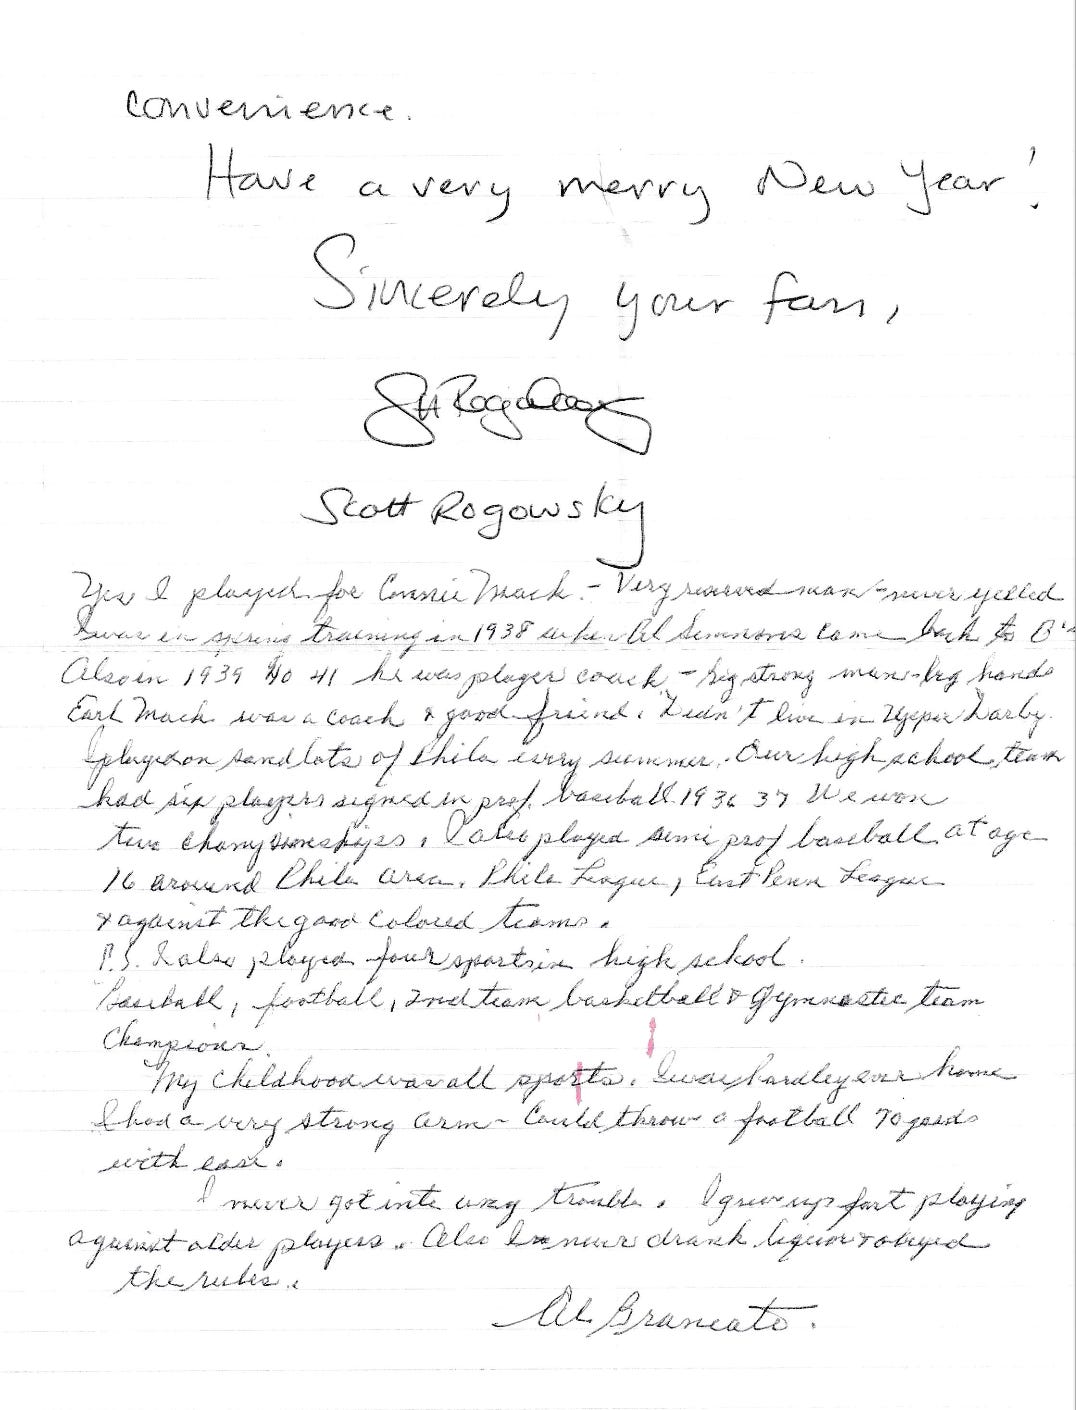 convenience.
Have a very merry New Year!
Sincerely your fan,
Scott Rogowsky
Yes I played for Connie Mack. - Very reserved man - never yelled
I was in spring training in 1938 when Al Simmons came back to
Also in 1939 to 41 he was player coach - big strong man - big hands
Earl Mack was a coach & good friend. Didn't live in Upper Darby.
I played on sand lots of Phila every summer. Our high school team
had six players signed in prof. baseball. 1936 37 We won
two championships. I also played semi prof baseball at age
16 around Phila area. Phila League, East Penn League
& against the good colored teams.
P.S. I also played four sports in high school.
Baseball, football, 2nd team basketball & Gymnastic team
Champions.
My childhood was all sports. I was hardley ever home
I had a very strong arm - Could throw a football 70 yards
with ease.
I never got into any trouble. I grew up fast playing
against older players. Also I never drank liquor & obeyed
the rules.
Al Brancato.